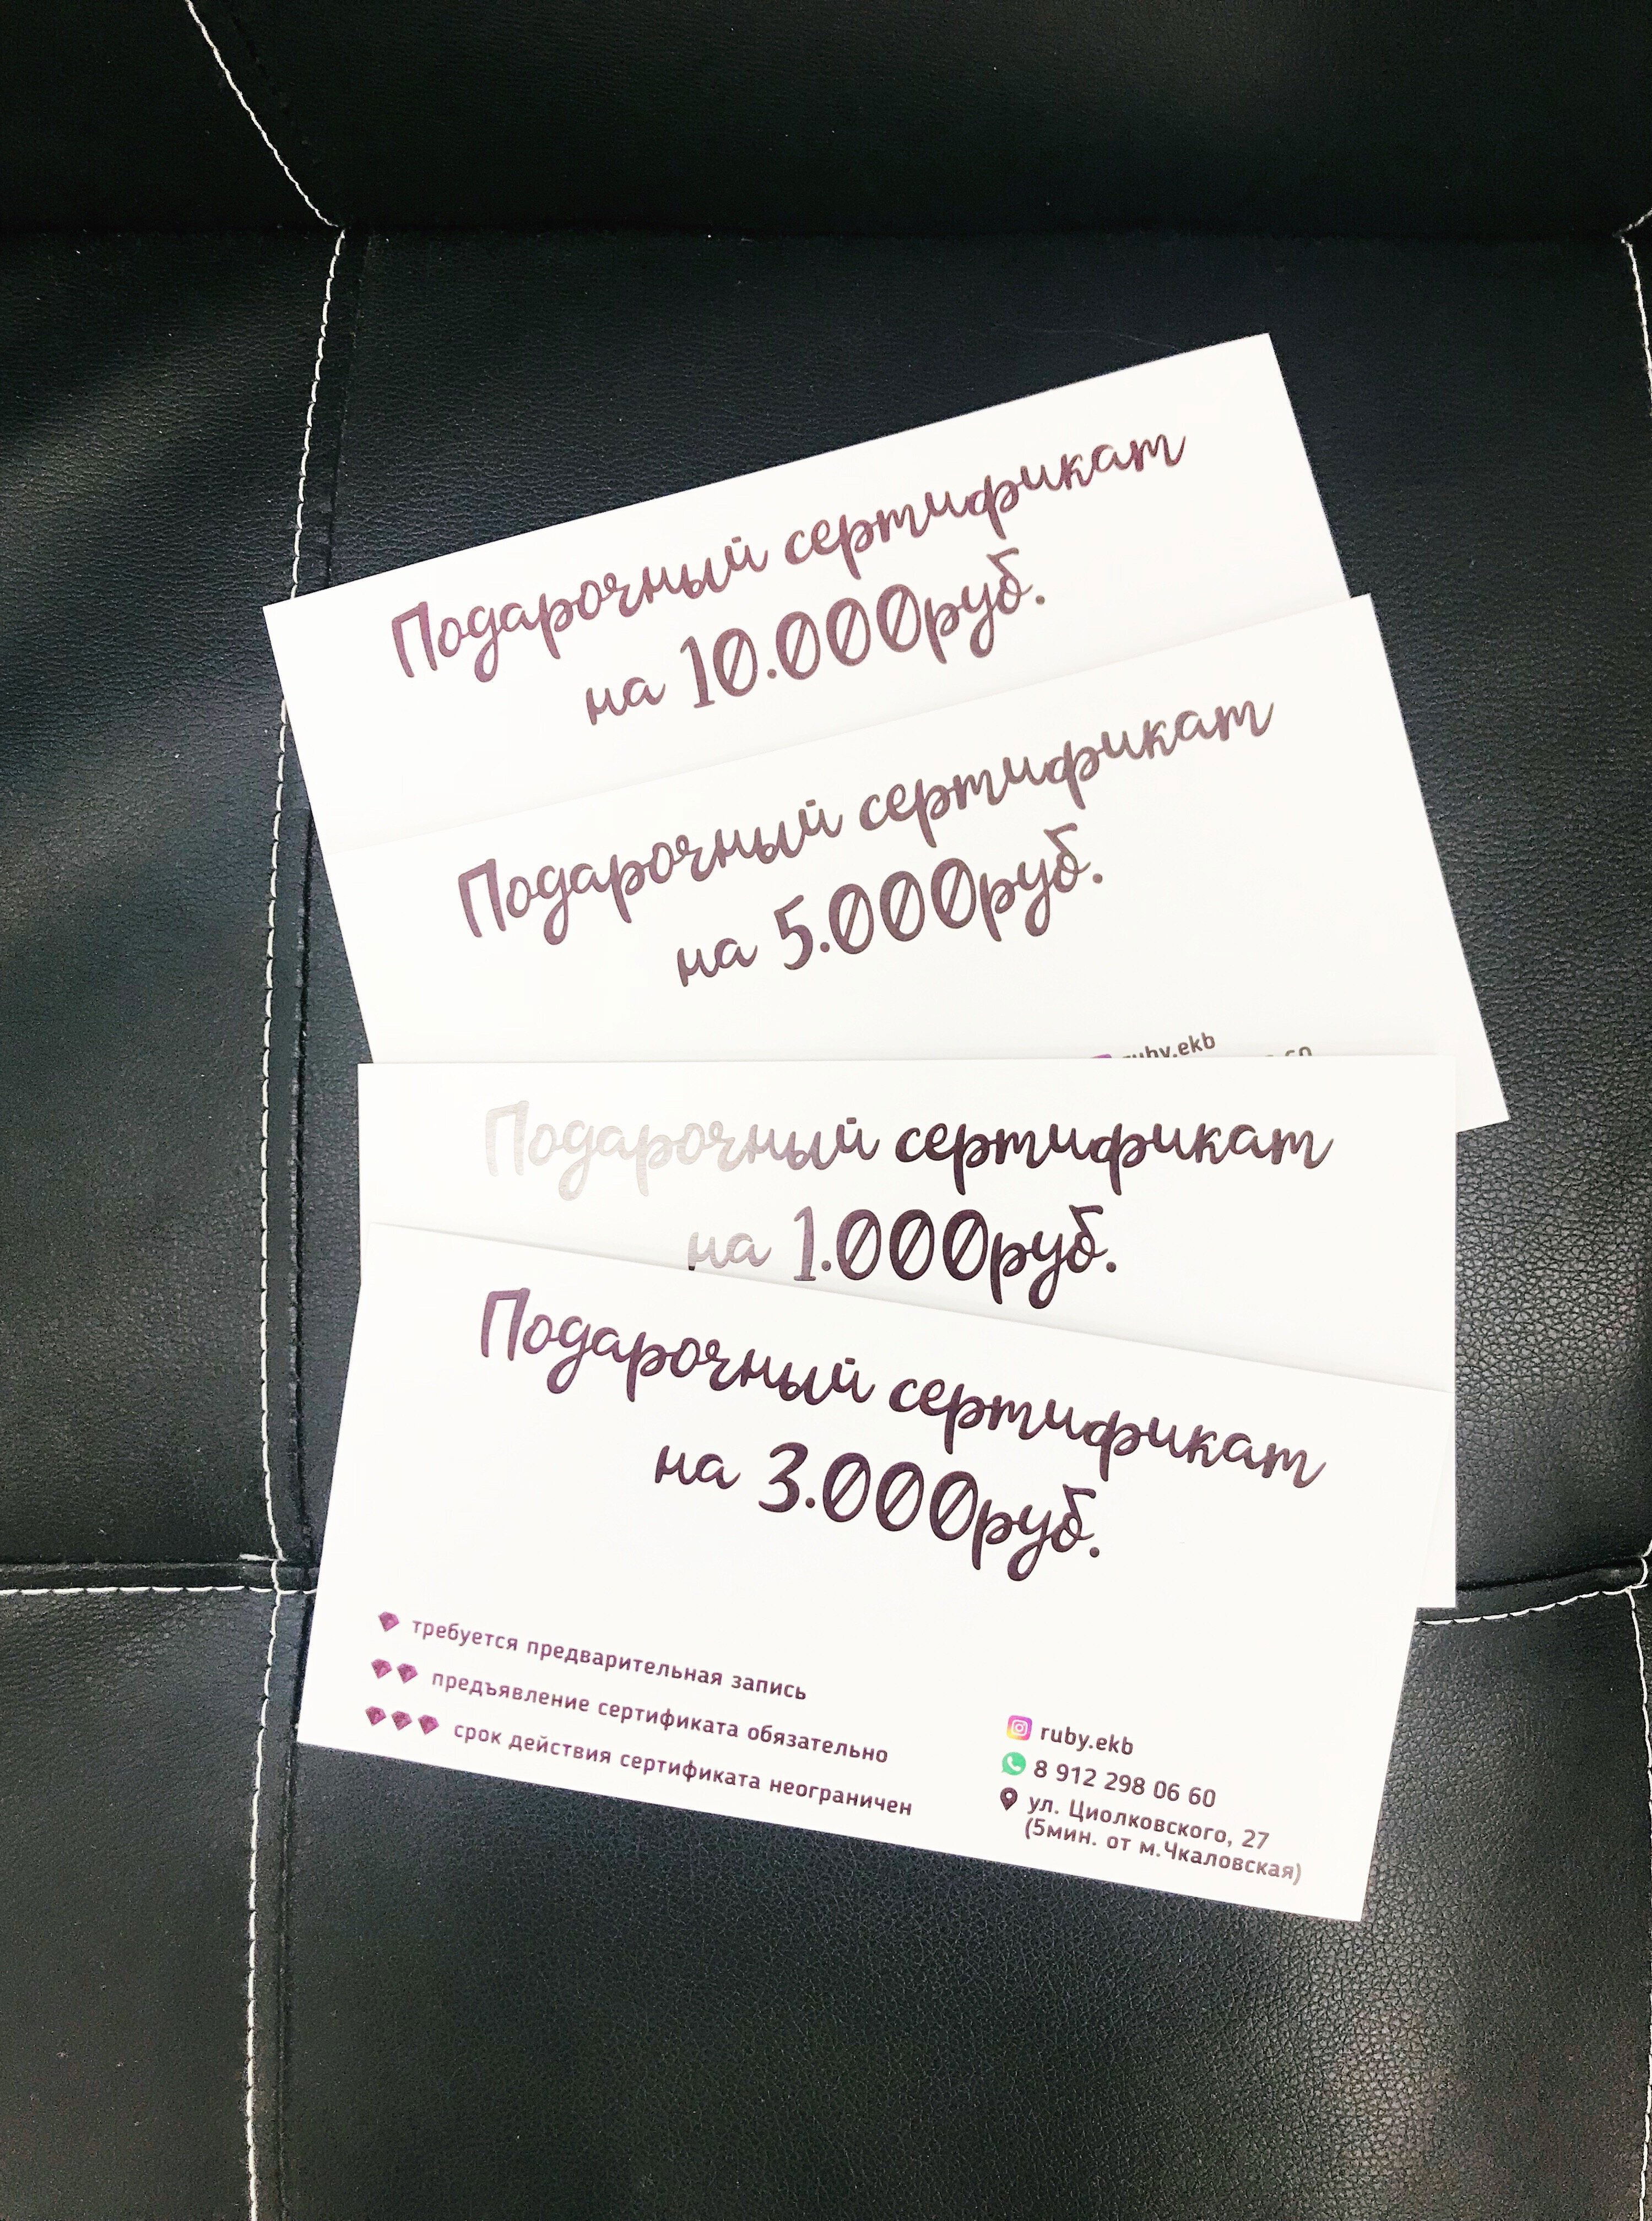 Подарочный сертификат
на 10.000руб.
Подарочный сертификат
на 5.000руб.
ruby.ekb
60
Подарочный сертификат
на 1.000руб.
Подарочный сертификат
на 3.000руб.
требуется предварительная запись
предъявление сертификата обязательно
срок действия сертификата неограничен
ruby.ekb
8 912 298 06 60
ул. Циолковского, 27
(5мин. от м.Чкаловская)